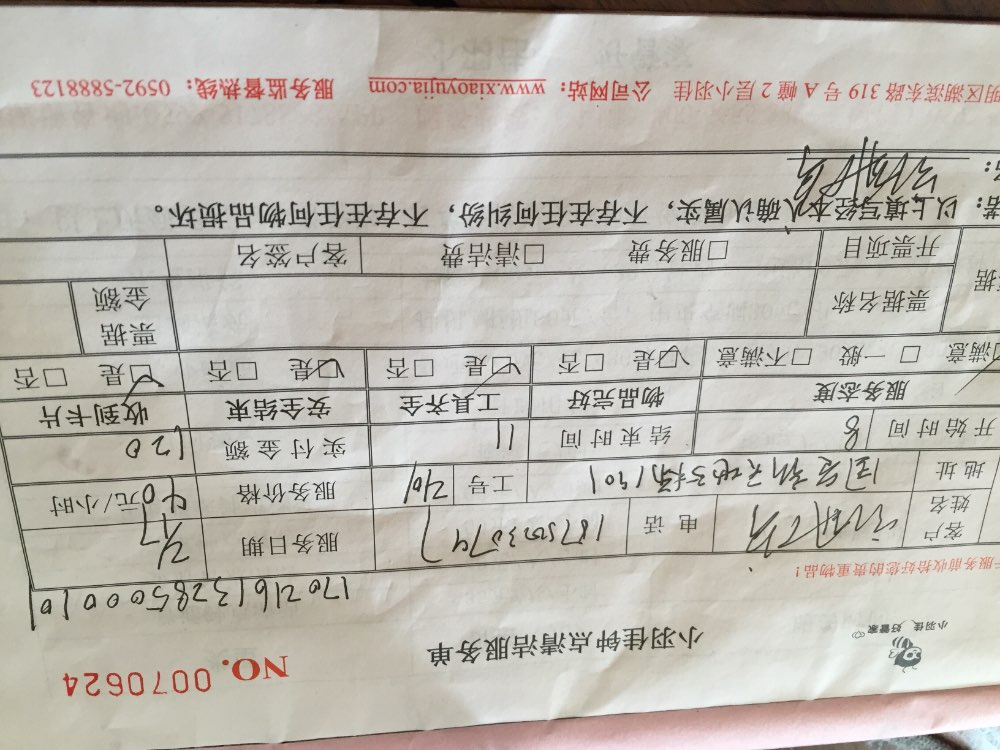 小羽佳 好管家
小羽佳钟点清洁服务单
NO. 0070624
170216132850001 0
务前收拾好您的贵重物品！
客户姓名 电话 18750030747 服务日期 2/17
地址 1301 工号 201 服务价格 40元/小时
开始时间 8 结束时间 11 实付金额 120
服务态度 物品完好 工具齐全 安全结束 收到卡片
满意 □ 一般 □不满意 □是 □否 □是 □否 □是 □否 □是 □否
票据名称 票据金额
开票项目 □服务费 □清洁费 客户签名
以上填写经本人确认属实，不存在任何纠纷，不存在任何物品损坏。
明区湖滨东路 319 号 A 幢 2 层小羽佳 公司网站：www.xiaoyujia.com 服务监督热线：0592-5888123